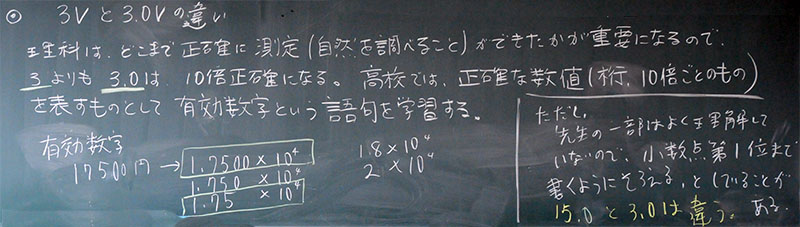 ◎ 3Vと3.0Vの違い
理科は、どこまで正確に測定(自然を調べること)ができたかが重要になるので、
3よりも3.0は、10倍正確になる。高校では、正確な数値(桁、10倍ごとのもの)
を表すものとして有効数字という語句を学習する。
有効数字
17500円 → 1.7500×10⁴
1.750×10⁴
1.75×10⁴
1.8×10⁴
2×10⁴
ただし、
先生の一部はよく理解して
いないので、小数点第1位まで
書くようにそろえる、としていることが
ある。
15.0と3.0は違う。